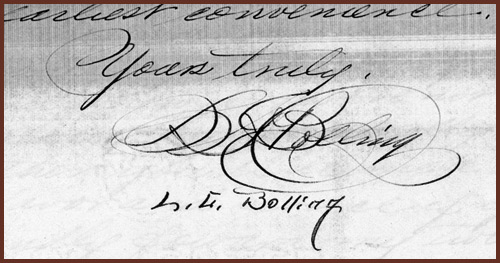 earliest convenience.
Yours truly.
Bolling
Bolling